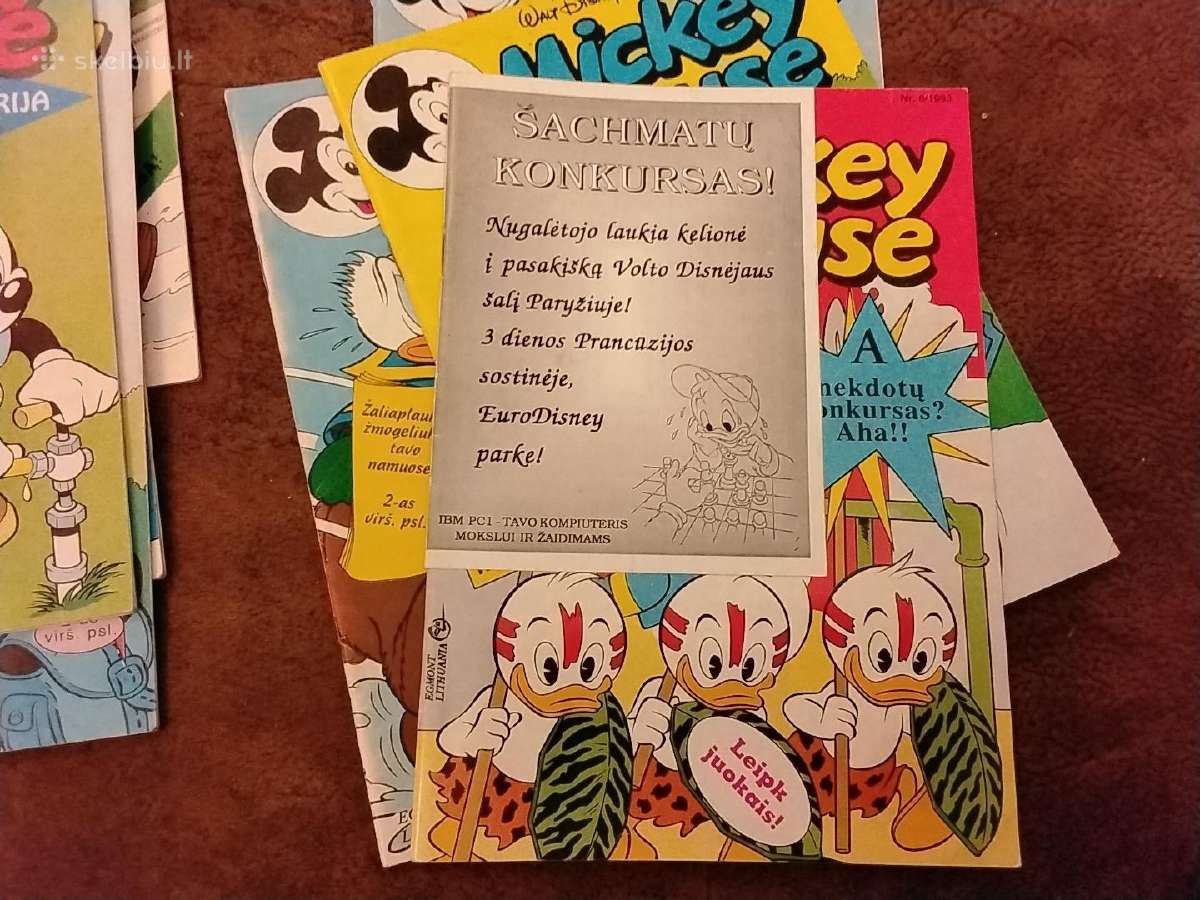 skelbiu.lt
RIJA
virš. psl.
WALT DISNEY
Mickey
use
Nr. 6/1993
key
use
ŠACHMATŲ
KONKURSAS!
Nugalėtojo laukia kelionė
į pasakišką Volto Disnėjaus
šalį Paryžiuje!
3 dienos Prancūzijos
sostinėje,
EuroDisney
parke!
IBM PC1 - TAVO KOMPIUTERIS
MOKSLUI IR ŽAIDIMAMS
Žaliaplau
žmogeliuk
tavo
namuose
2-as
virš. psl.
A
nekdotų
onkursas?
Aha!!
EGMONT
LITHUANIA
Leipk
juokais!